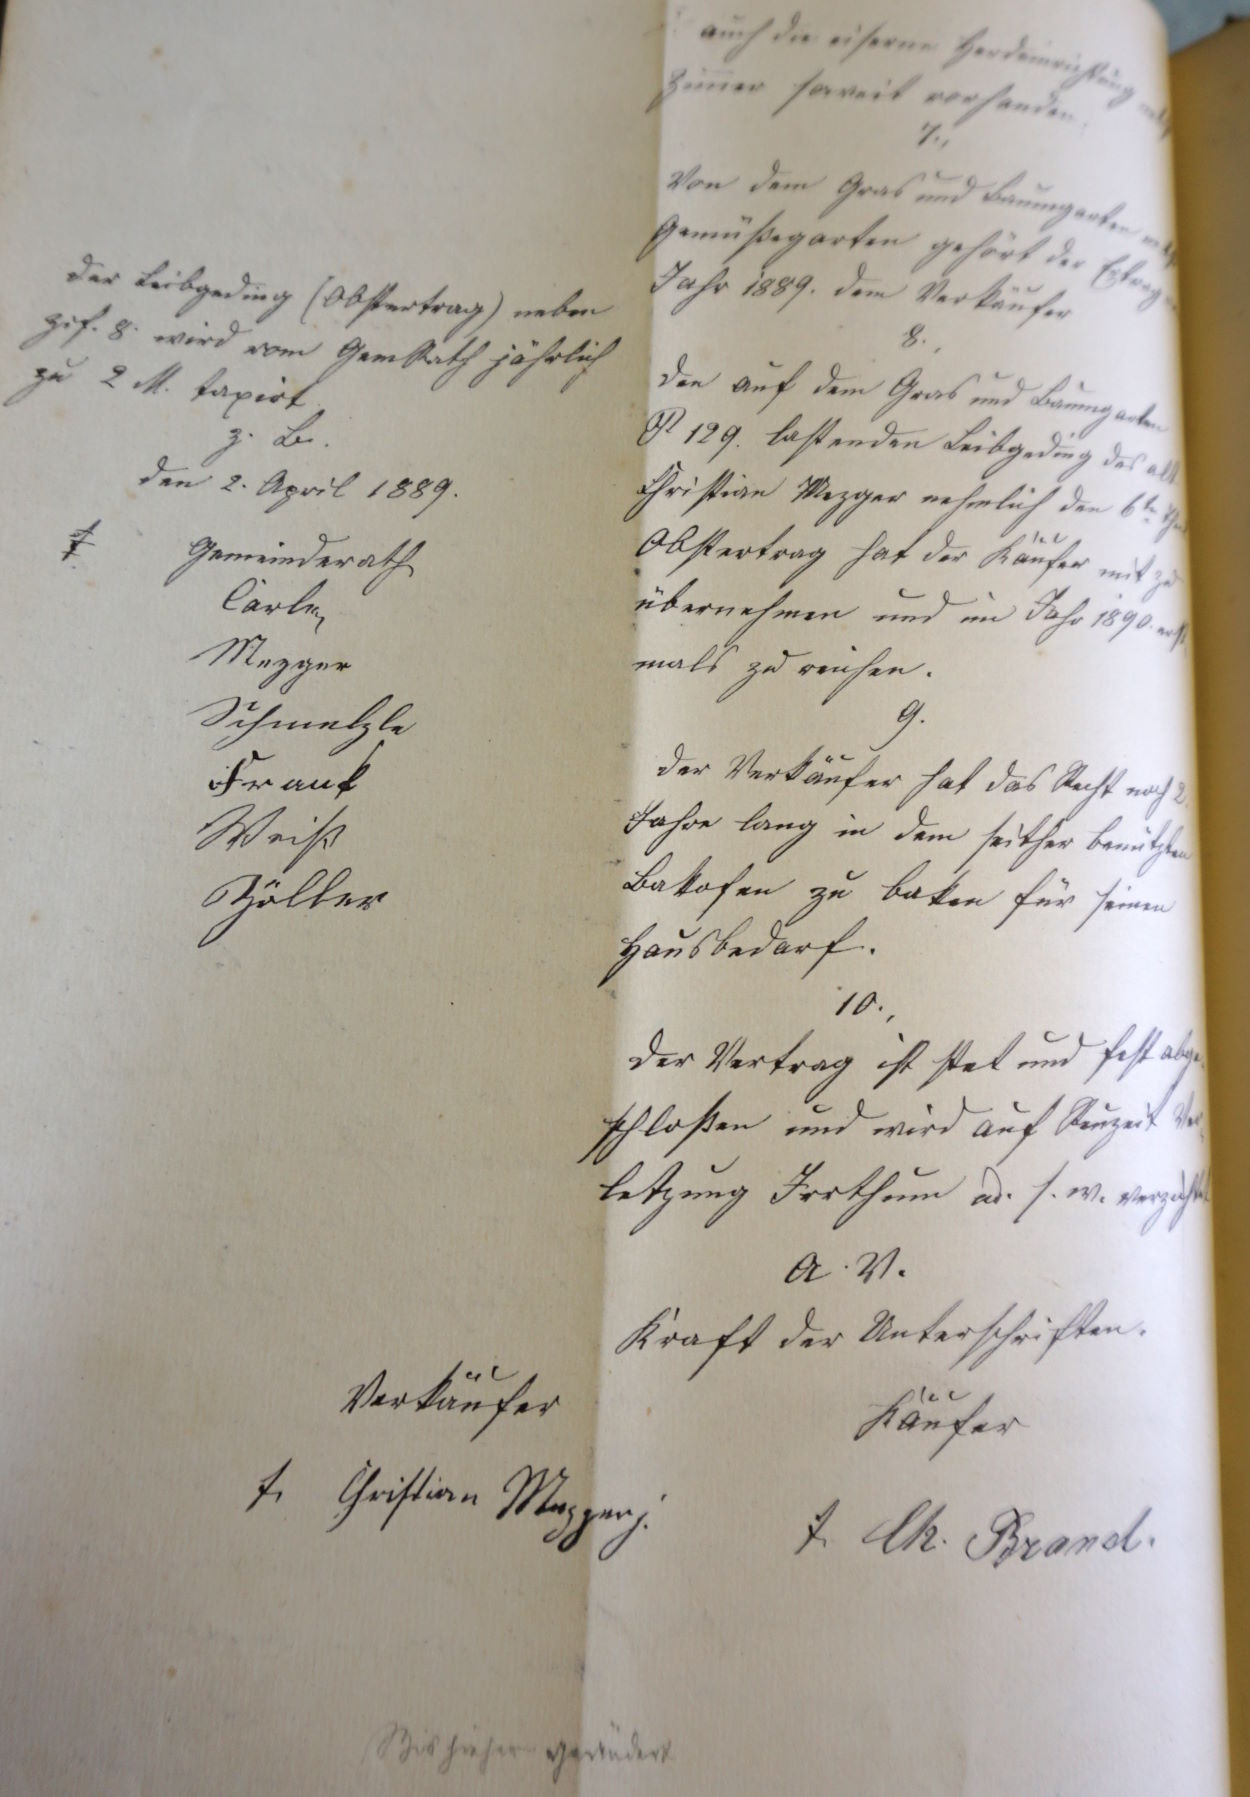 auch die eiserne Herdeinrichtung
Zimmer soweit vorhanden.
7.,
Von dem Gras und Baumgarten
Gemüßegarten gehört der Ertrag
Jahr 1889. dem Verkäufer
8.,
Den auf dem Gras und Baumgarten
P 129. lastenden Leibgeding des alt
Christian Mezger nehmlich den 6ten Theil
Obstertrag hat der Käufer mit zu
übernehmen und im Jahr 1890. erst
mals zu reichen.
9.
Der Verkäufer hat das Recht noch 2
Jahre lang in dem seither benützten
Bakofen zu baken für seinen
Hausbedarf.
10.,
Der Vertrag ist stet und fest abge
schloßen und wird auf Reuzeit Ver
letzung Irrthum u. s. w. verzichtet
A. V.
Kraft der Unterschriften.
Der Leibgeding (Obstertrag) neben
Zif. 8. wird vom GemRath jährlich
zu 2 M. taxirt.
z. B.
Den 2. April 1889.
Gemeinderath
Carle
Mezger
Schmelzle
Frank
Weiß
Zöller
Verkäufer
t. Christian Mezger j.
Käufer
t. Ch. Brand.
Bis hieher geändert